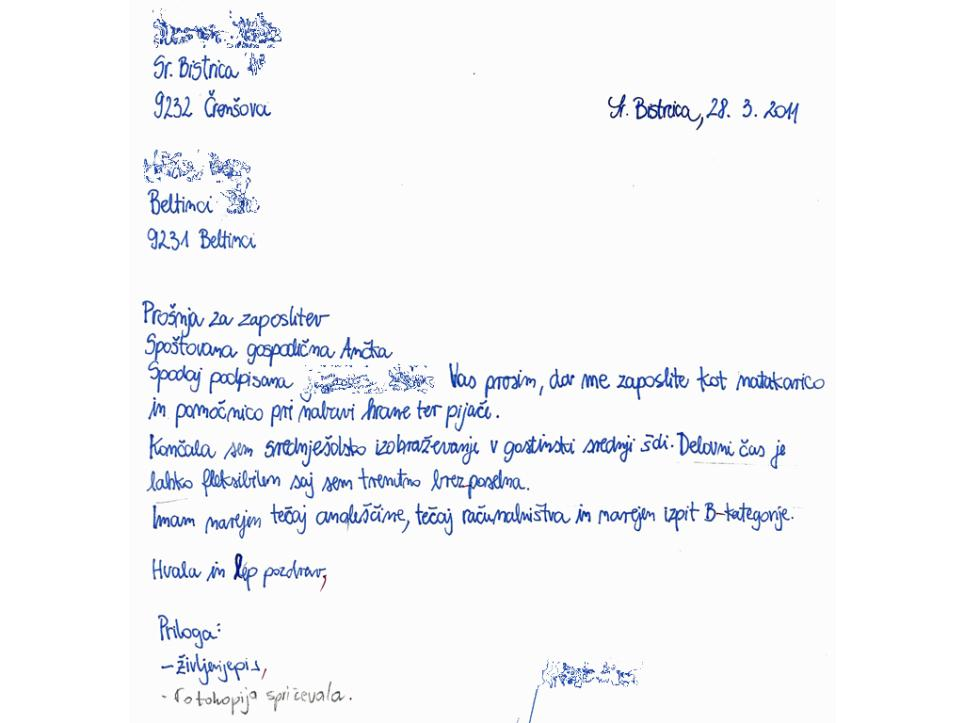 Sr. Bistrica
9232 Črenšovci
Sr. Bistrica, 28. 3. 2011
Beltinci
9231 Beltinci
Prošnja za zaposlitev
Spoštovana gospodična Ančka
Spodaj podpisana Vas prosim, da me zaposlite kot natakarico
in pomočnico pri nabavi hrane ter pijači.
Končala sem srednješolsko izobraževanje v gostinski srednji šoli. Delovni čas je
lahko fleksibilen saj sem trenutno brezposelna.
Imam narejen tečaj angleščine, tečaj računalništva in narejen izpit B-kategorije.
Hvala in lep pozdrav,
Priloga:
- življenjepis,
- Fotokopija spričevala.